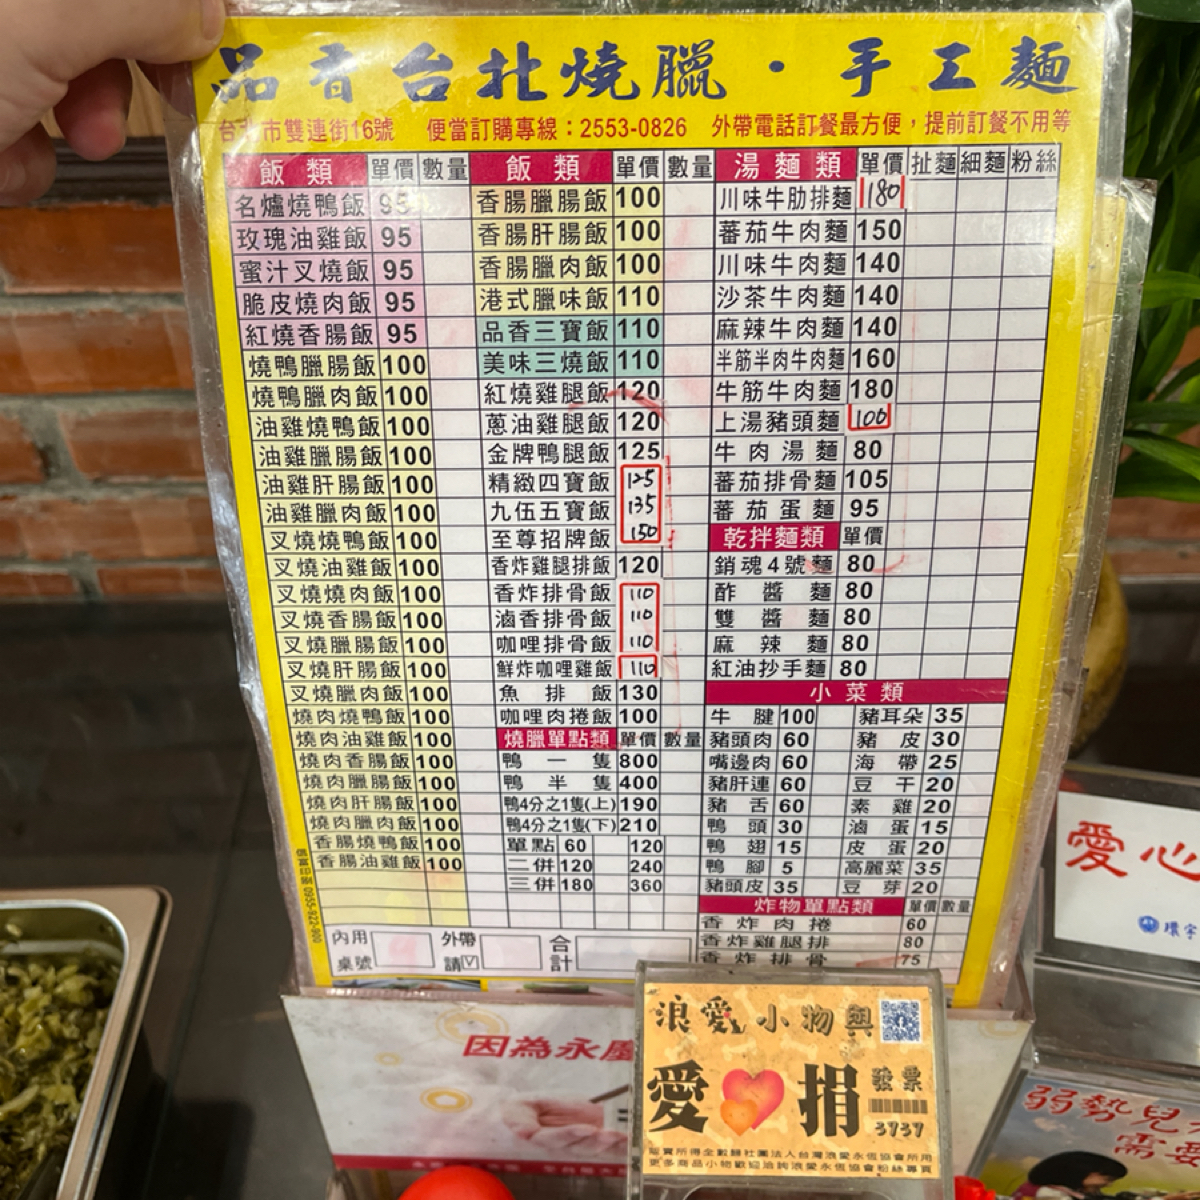 品香台北燒臘·手工麵
台北市雙連街16號 便當訂購專線:2553-0826 外帶電話訂餐最方便,提前訂餐不用等
飯類 單價 數量
名爐燒鴨飯 95
玫瑰油雞飯 95
蜜汁叉燒飯 95
脆皮燒肉飯 95
紅燒香腸飯 95
燒鴨臘腸飯 100
燒鴨臘肉飯 100
油雞燒鴨飯 100
油雞臘腸飯 100
油雞肝腸飯 100
油雞臘肉飯 100
叉燒燒鴨飯 100
叉燒油雞飯 100
叉燒燒肉飯 100
叉燒香腸飯 100
叉燒臘腸飯 100
叉燒肝腸飯 100
叉燒臘肉飯 100
燒肉燒鴨飯 100
燒肉油雞飯 100
燒肉香腸飯 100
燒肉臘腸飯 100
燒肉肝腸飯 100
燒肉臘肉飯 100
香腸燒鴨飯 100
香腸油雞飯 100
飯類 單價 數量
香腸臘腸飯 100
香腸肝腸飯 100
香腸臘肉飯 100
港式臘味飯 110
品香三寶飯 110
美味三燒飯 110
紅燒雞腿飯 120
蔥油雞腿飯 120
金牌鴨腿飯 125
精緻四寶飯 125
九伍五寶飯 135
至尊招牌飯 150
香炸雞腿排飯 120
香炸排骨飯 110
滷香排骨飯 110
咖哩排骨飯 110
鮮炸咖哩雞飯 110
魚排飯 130
咖哩肉捲飯 100
燒臘單點類 單價 數量
鴨一隻 800
鴨半隻 400
鴨4分之1隻(上) 190
鴨4分之1隻(下) 210
單點 60 120
二併 120 240
三併 180 360
湯麵類 單價 扯麵 細麵 粉絲
川味牛肋排麵 180
蕃茄牛肉麵 150
川味牛肉麵 140
沙茶牛肉麵 140
麻辣牛肉麵 140
半筋半肉牛肉麵 160
牛筋牛肉麵 180
上湯豬頭麵 100
牛肉湯麵 80
蕃茄排骨麵 105
蕃茄蛋麵 95
乾拌麵類 單價
銷魂4號麵 80
酢醬麵 80
雙醬麵 80
麻辣麵 80
紅油抄手麵 80
小菜類
牛腱 100 豬耳朵 35
豬頭肉 60 豬皮 30
嘴邊肉 60 海帶 25
豬肝連 60 豆干 20
豬舌 60 素雞 20
鴨頭 30 滷蛋 15
鴨翅 15 皮蛋 20
鴨腳 5 高麗菜 35
豬頭皮 35 豆芽 20
炸物單點類 單價 數量
香炸肉捲 60
香炸雞腿排 80
香炸排骨 75
內用桌號 外帶請V 合計
因為永
浪愛小物與
愛捐
發票
3737
愛心
環宇
弱勢兒
需要